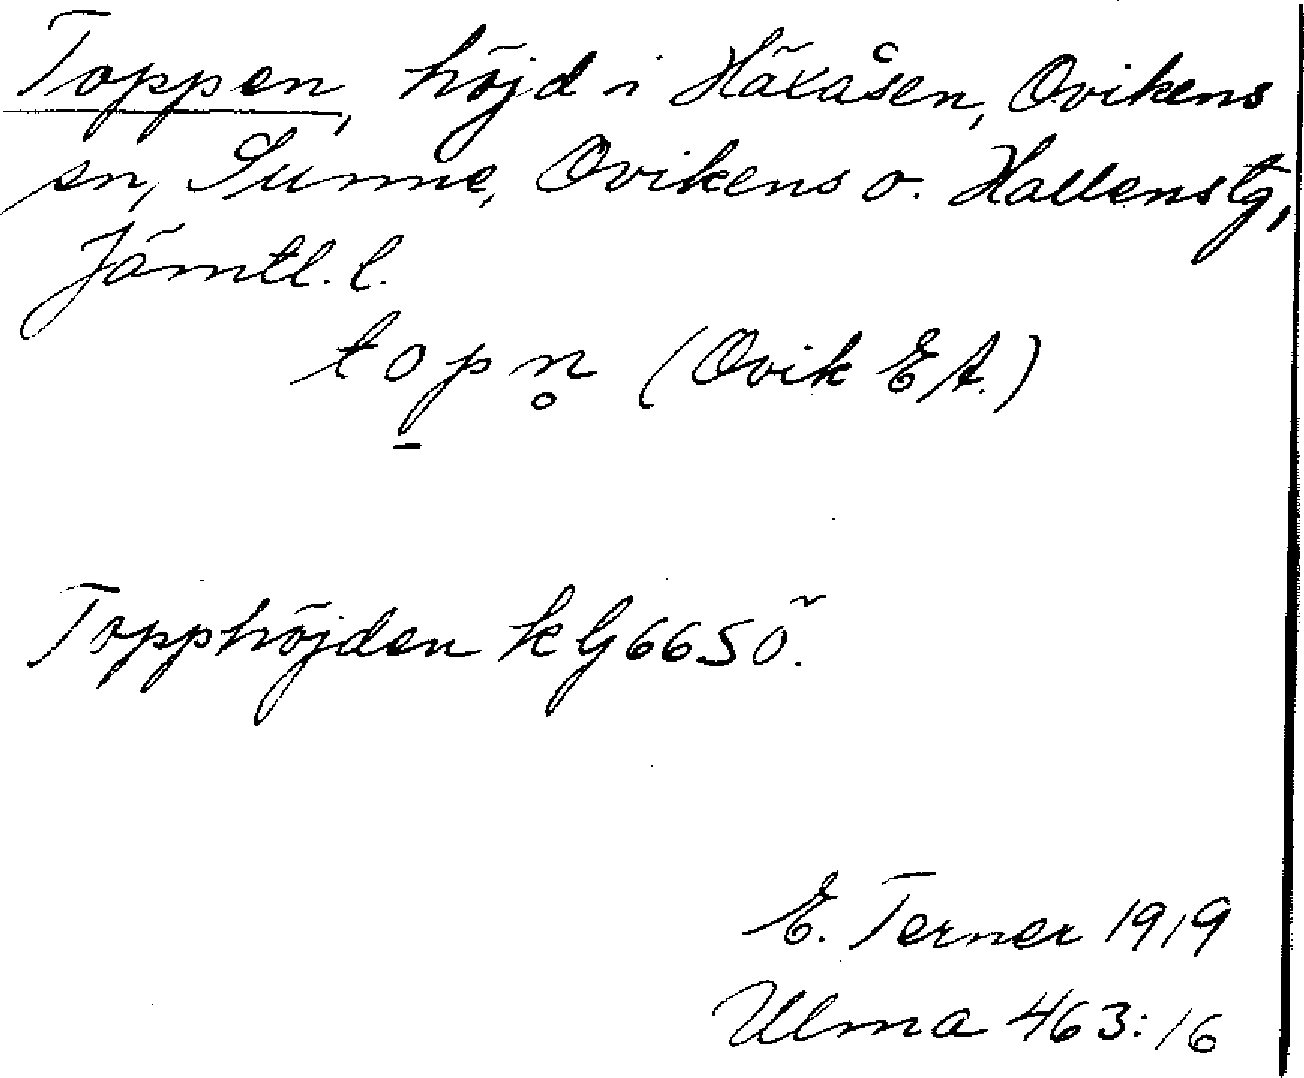 Toppen, höjd i Häxåsen, Ovikens
sn, Sunne, Ovikens o. Hallens tg,
Jämtl. l.
top̲n̥ (Ovik EA.)
Topphöjden kG 66SÖ.
E. Terner 1919
Ulma 463:16